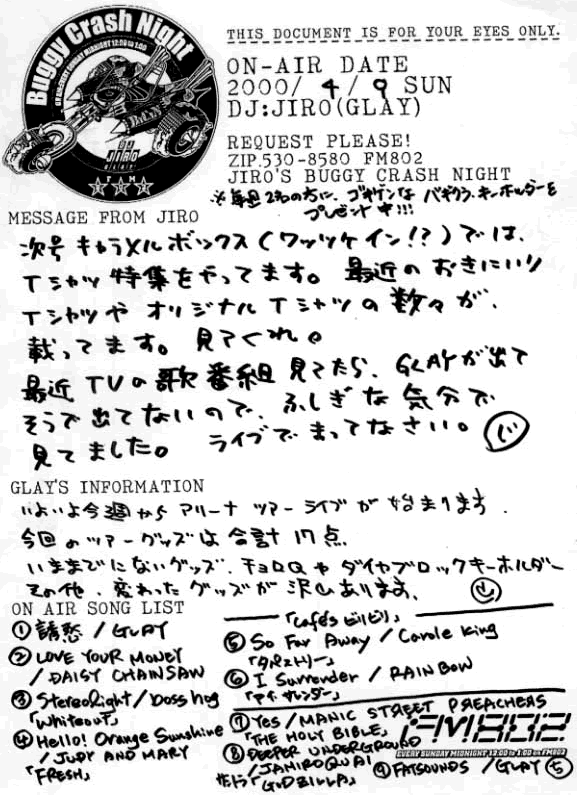 Buggy Crash Night
DJ JIRO
GLAY
FM
THIS DOCUMENT IS FOR YOUR EYES ONLY.
ON-AIR DATE
2000/ 4/ 9 SUN
DJ:JIRO(GLAY)
REQUEST PLEASE!
ZIP.530-8580 FM802
JIRO'S BUGGY CRASH NIGHT
※毎週2名の方に、ゴキゲンなバギクラ・キーホルダーを
プレゼント中!!!
MESSAGE FROM JIRO
次号キャラメルボックス(ワッツケイン!?)では、
Tシャツ特集をやってます。最近のおきにいり
TシャツやオリジナルTシャツの数々が、
載ってます。見てくれ。
最近TVの歌番組見てたら、GLAYが出て
そうで出てないので、ふしぎな気分で
見てました。ライブでまってなさい。
GLAY'S INFORMATION
いよいよ今週からアリーナツアーライブが始まります.
今回のツアーグッズは合計17点.
いままでにないグッズ、チョロQやダイヤブロックキーホルダー
その他、変わったグッズが沢山あります。
ON AIR SONG LIST
① 誘惑 / GLAY
② LOVE YOUR MONEY
/ DAISY CHAINSAW
③ StereoRight / boss hog
「Whiteout」
④ Hello! Orange Sunshine
/ JUDY AND MARY
「FRESH」
「Cafe's ビリビリ」
⑤ So Far Away / Carole King
「タペストリー」
⑥ I Surrender / RAINBOW
「アイ サレンダー」
⑦ Yes / MANIC STREET PREACHERS
「THE HOLY BIBLE」
FM802
EVERY SUNDAY MIDNIGHT 12:00 to 1:00 on FM802
⑧ DEEPER UNDERGROUND
/ JAMIROQUAI
「GODZILLA」
⑨ FATSOUNDS / GLAY